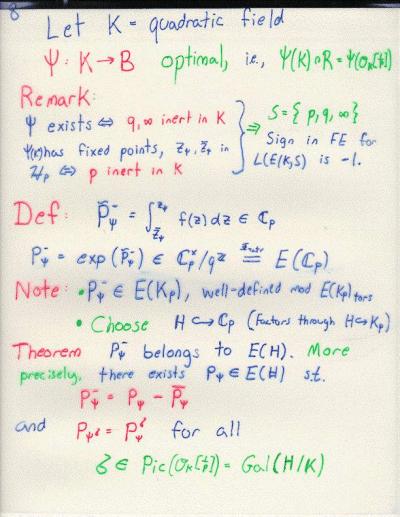 8
Let K = quadratic field
Ψ : K → B optimal, i.e., Ψ(K) ∩ R = Ψ(O_K[1/p])
Remark:
Ψ exists ⇔ q, ∞ inert in K
Ψ(K) has fixed points, z_Ψ, z̄_Ψ in
ℋ_p ⇔ p inert in K
⇒ S = {p, q, ∞}
Sign in FE for
L(E/K, S) is -1.
Def: P̃_Ψ^- = ∫_{z̄_Ψ}^{z_Ψ} f(z)dz ∈ ℂ_p
P_Ψ^- = exp(P̃_Ψ^-) ∈ ℂ_p^x/q^ℤ = E(ℂ_p)
Note: • P_Ψ^- ∈ E(K_p), well-defined mod E(K_p)_tors
• Choose H ↪ ℂ_p (Factors through H ↪ K_p)
Theorem P_Ψ^- belongs to E(H). More
precisely, there exists P_Ψ ∈ E(H) s.t.
P_Ψ^- = P_Ψ - P̄_Ψ
and P_Ψ^σ = P_Ψ^σ for all
σ ∈ Pic(O_K[1/p]) = Gal(H/K)